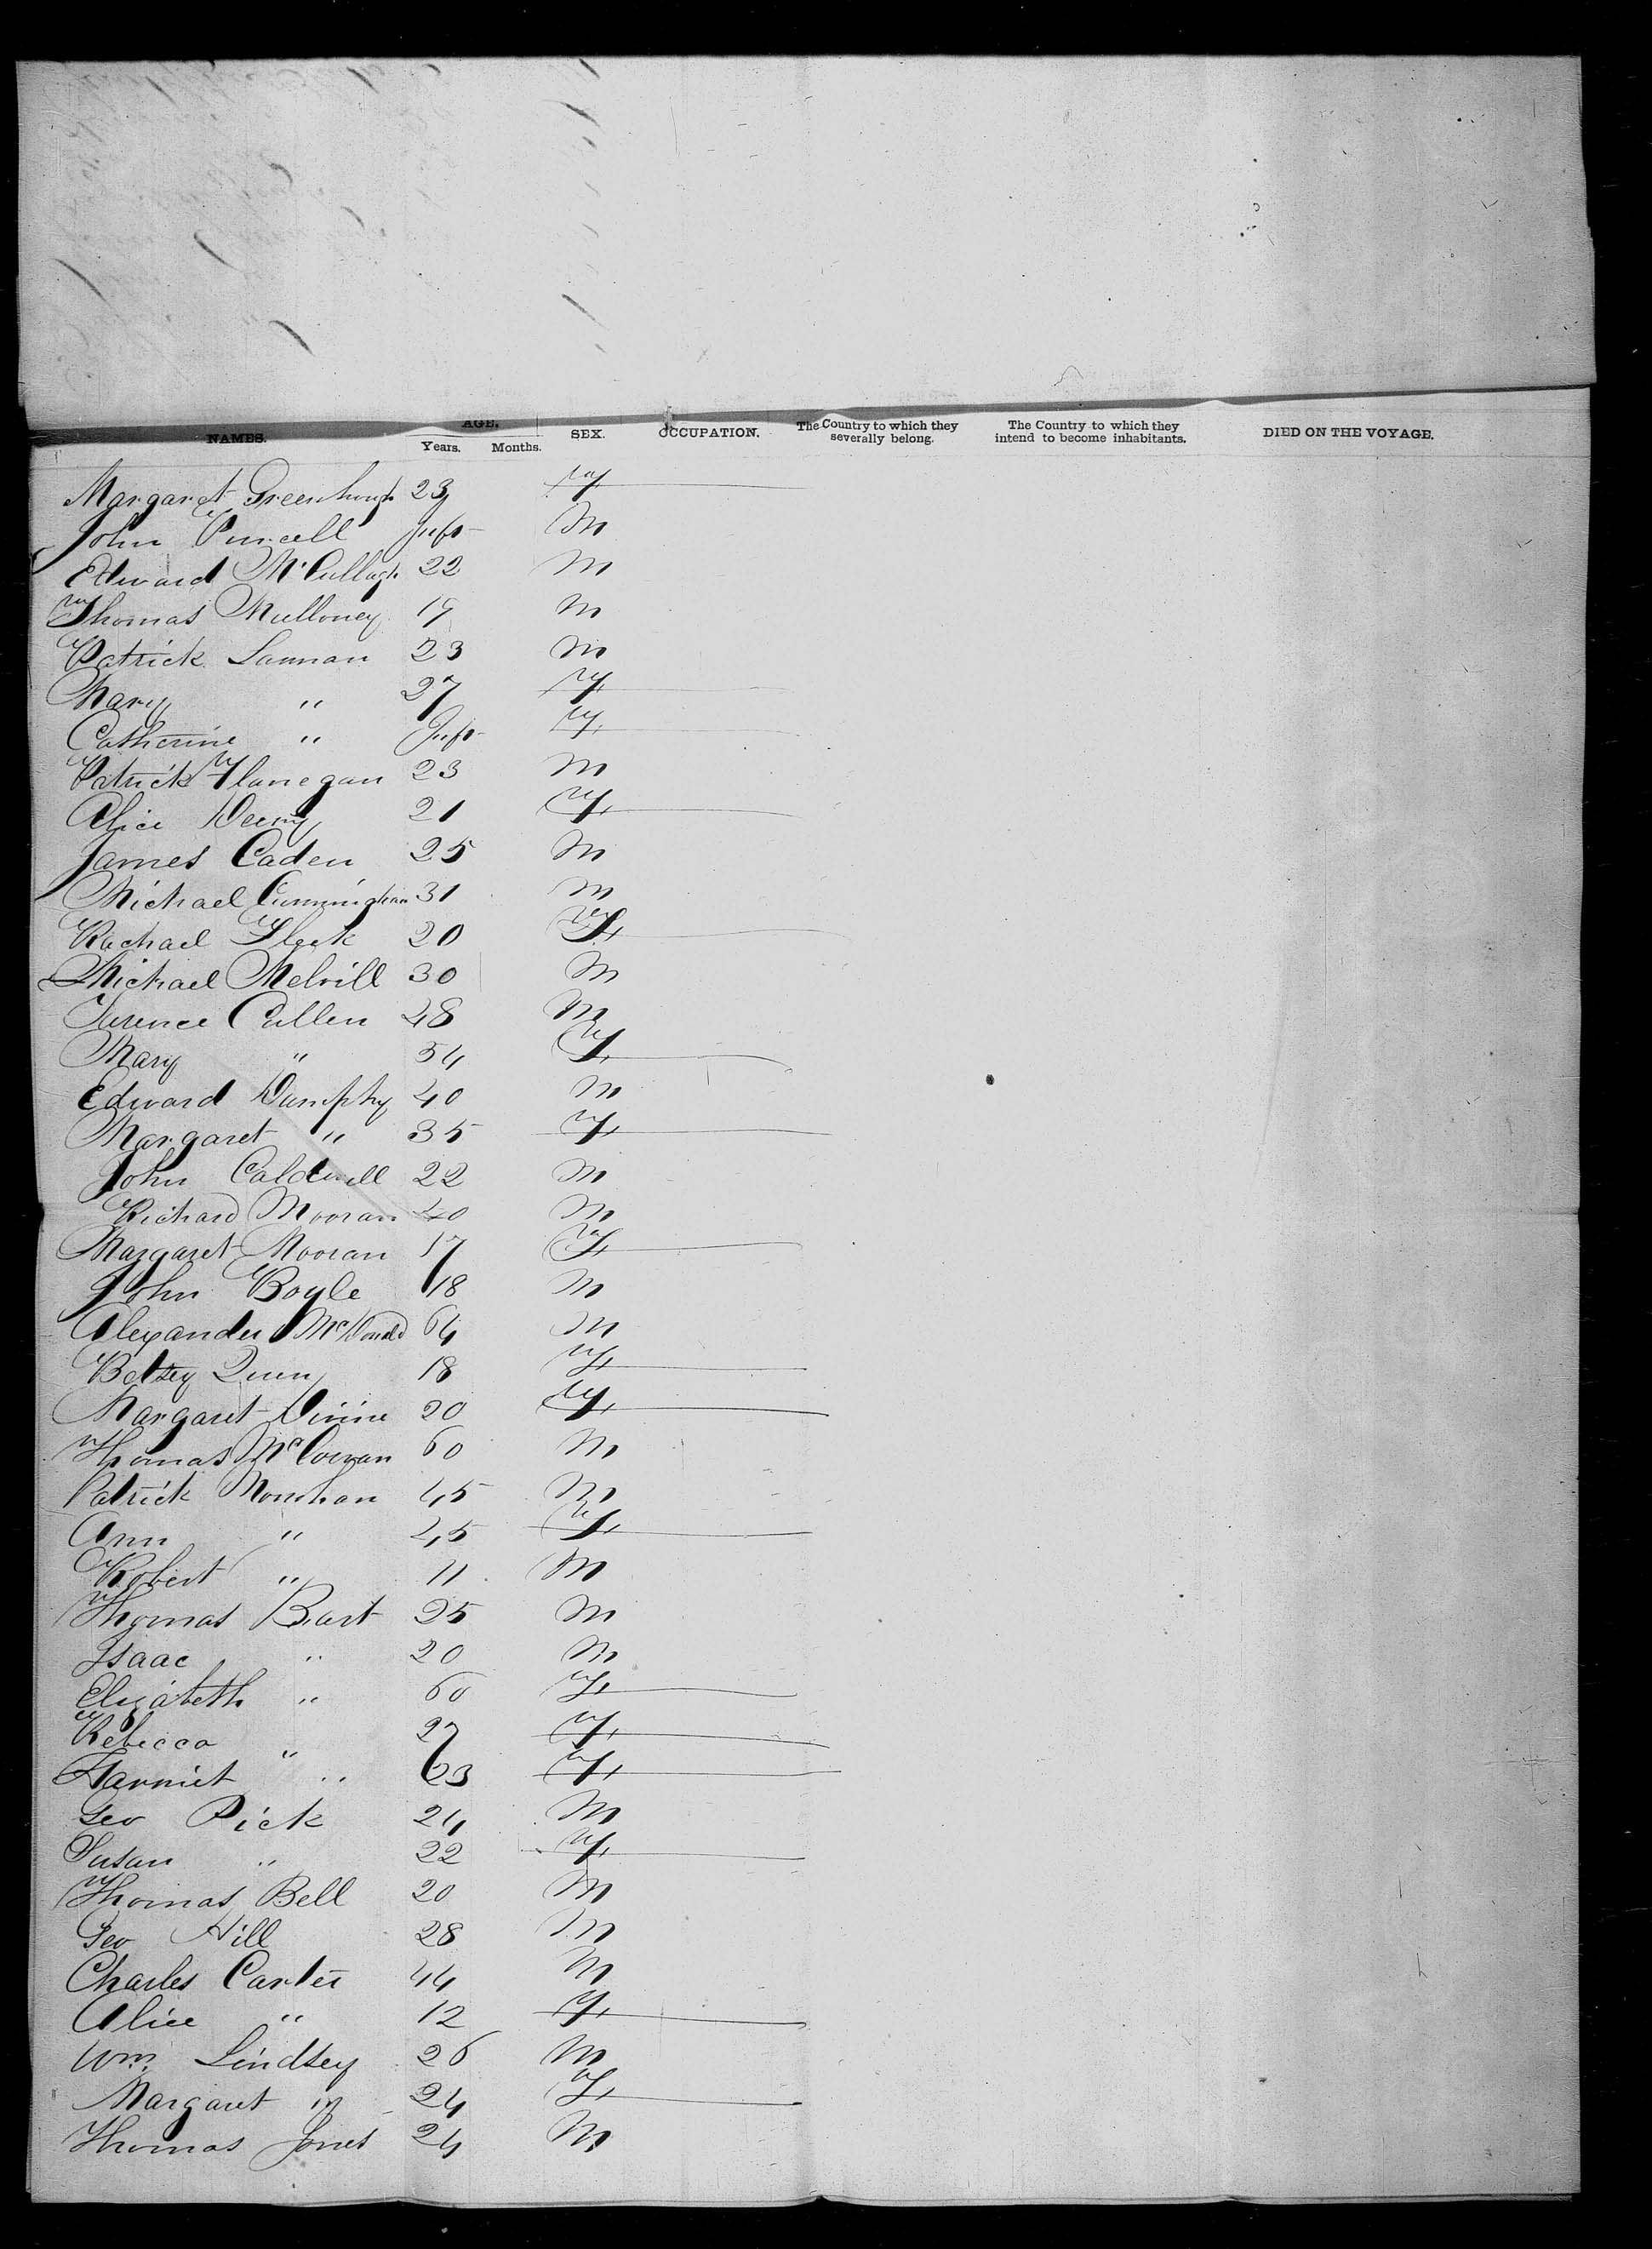 NAMES. AGE. SEX. OCCUPATION. The Country to which they severally belong. The Country to which they intend to become inhabitants. DIED ON THE VOYAGE.
Years. Months.
Margaret Greenhough 23 F
John Purcell Inft M
Edward McCullagh 22 M
Thomas Mulloney 19 M
Patrick Lannan 23 M
Mary " 27 F
Catherine " Inft F
Patrick Flanegan 23 M
Alice Deery 21 F
James Caden 25 M
Michael Cunningham 31 M
Rachael Fleck 20 F
Michael Melvill 30 M
Terence Cullen 48 M
Mary " 54 F
Edward Dumphy 40 M
Margaret " 35 F
John Caldwell 22 M
Richard Mooran 40 M
Margaret Mooran 17 F
John Boyle 18 M
Alexander McDonald 64 M
Betsey Quen 18 F
Margaret Divine 20 F
Thomas McCowan 60 M
Patrick Monahan 45 M
Ann " 45 F
Robert " 11 M
Thomas Bart 25 M
Isaac " 20 M
Elizabeth " 60 F
Rebecca " 27 F
Harriet " 63 F
Geo Pick 24 M
Susan " 22 F
Thomas Bell 20 M
Geo Hill 28 M
Charles Carter 44 M
Alice " 12 F
Wm Lindsey 26 M
Margaret " 24 F
Thomas Jones 24 M